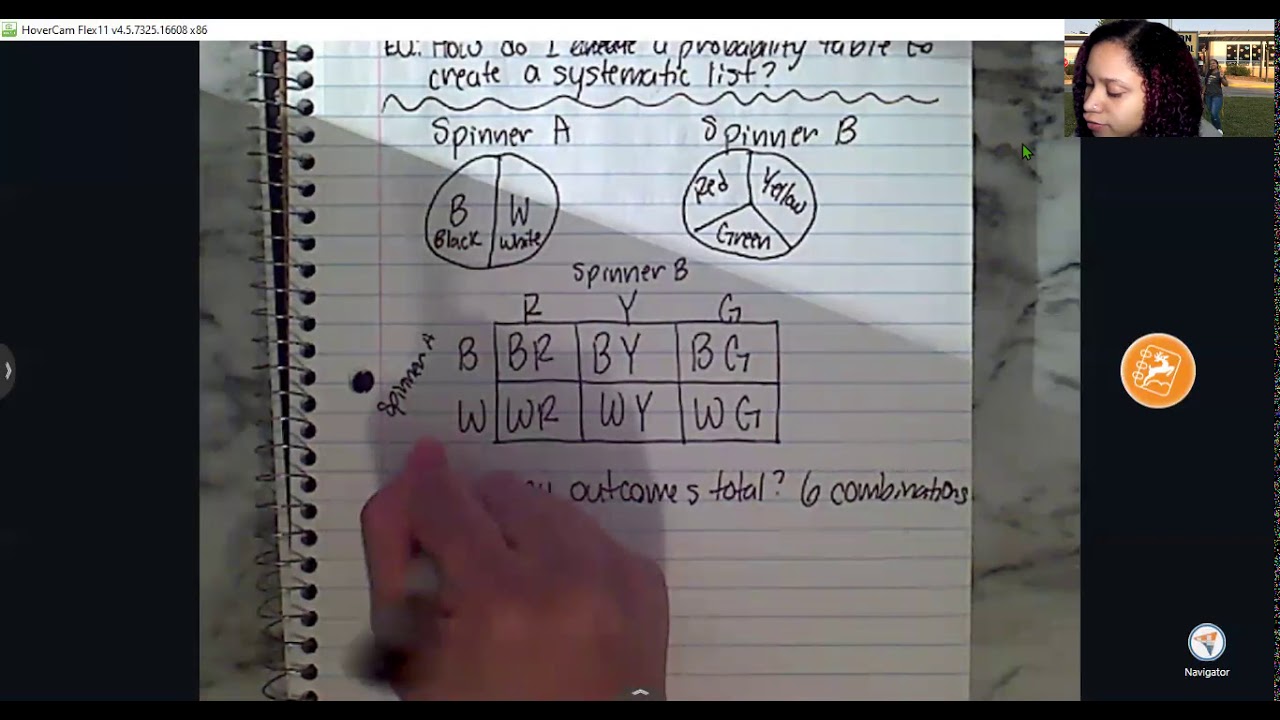 HoverCam Flex11 v4.5.7325.16608 x86
EQ: How do I create a probability table to
create a systematic list?
Spinner A Spinner B
B W Red Yellow
Black White Green
Spinner B
R Y G
Spinner A
B BR BY BG
W WR WY WG
outcomes total? 6 combinations
Navigator